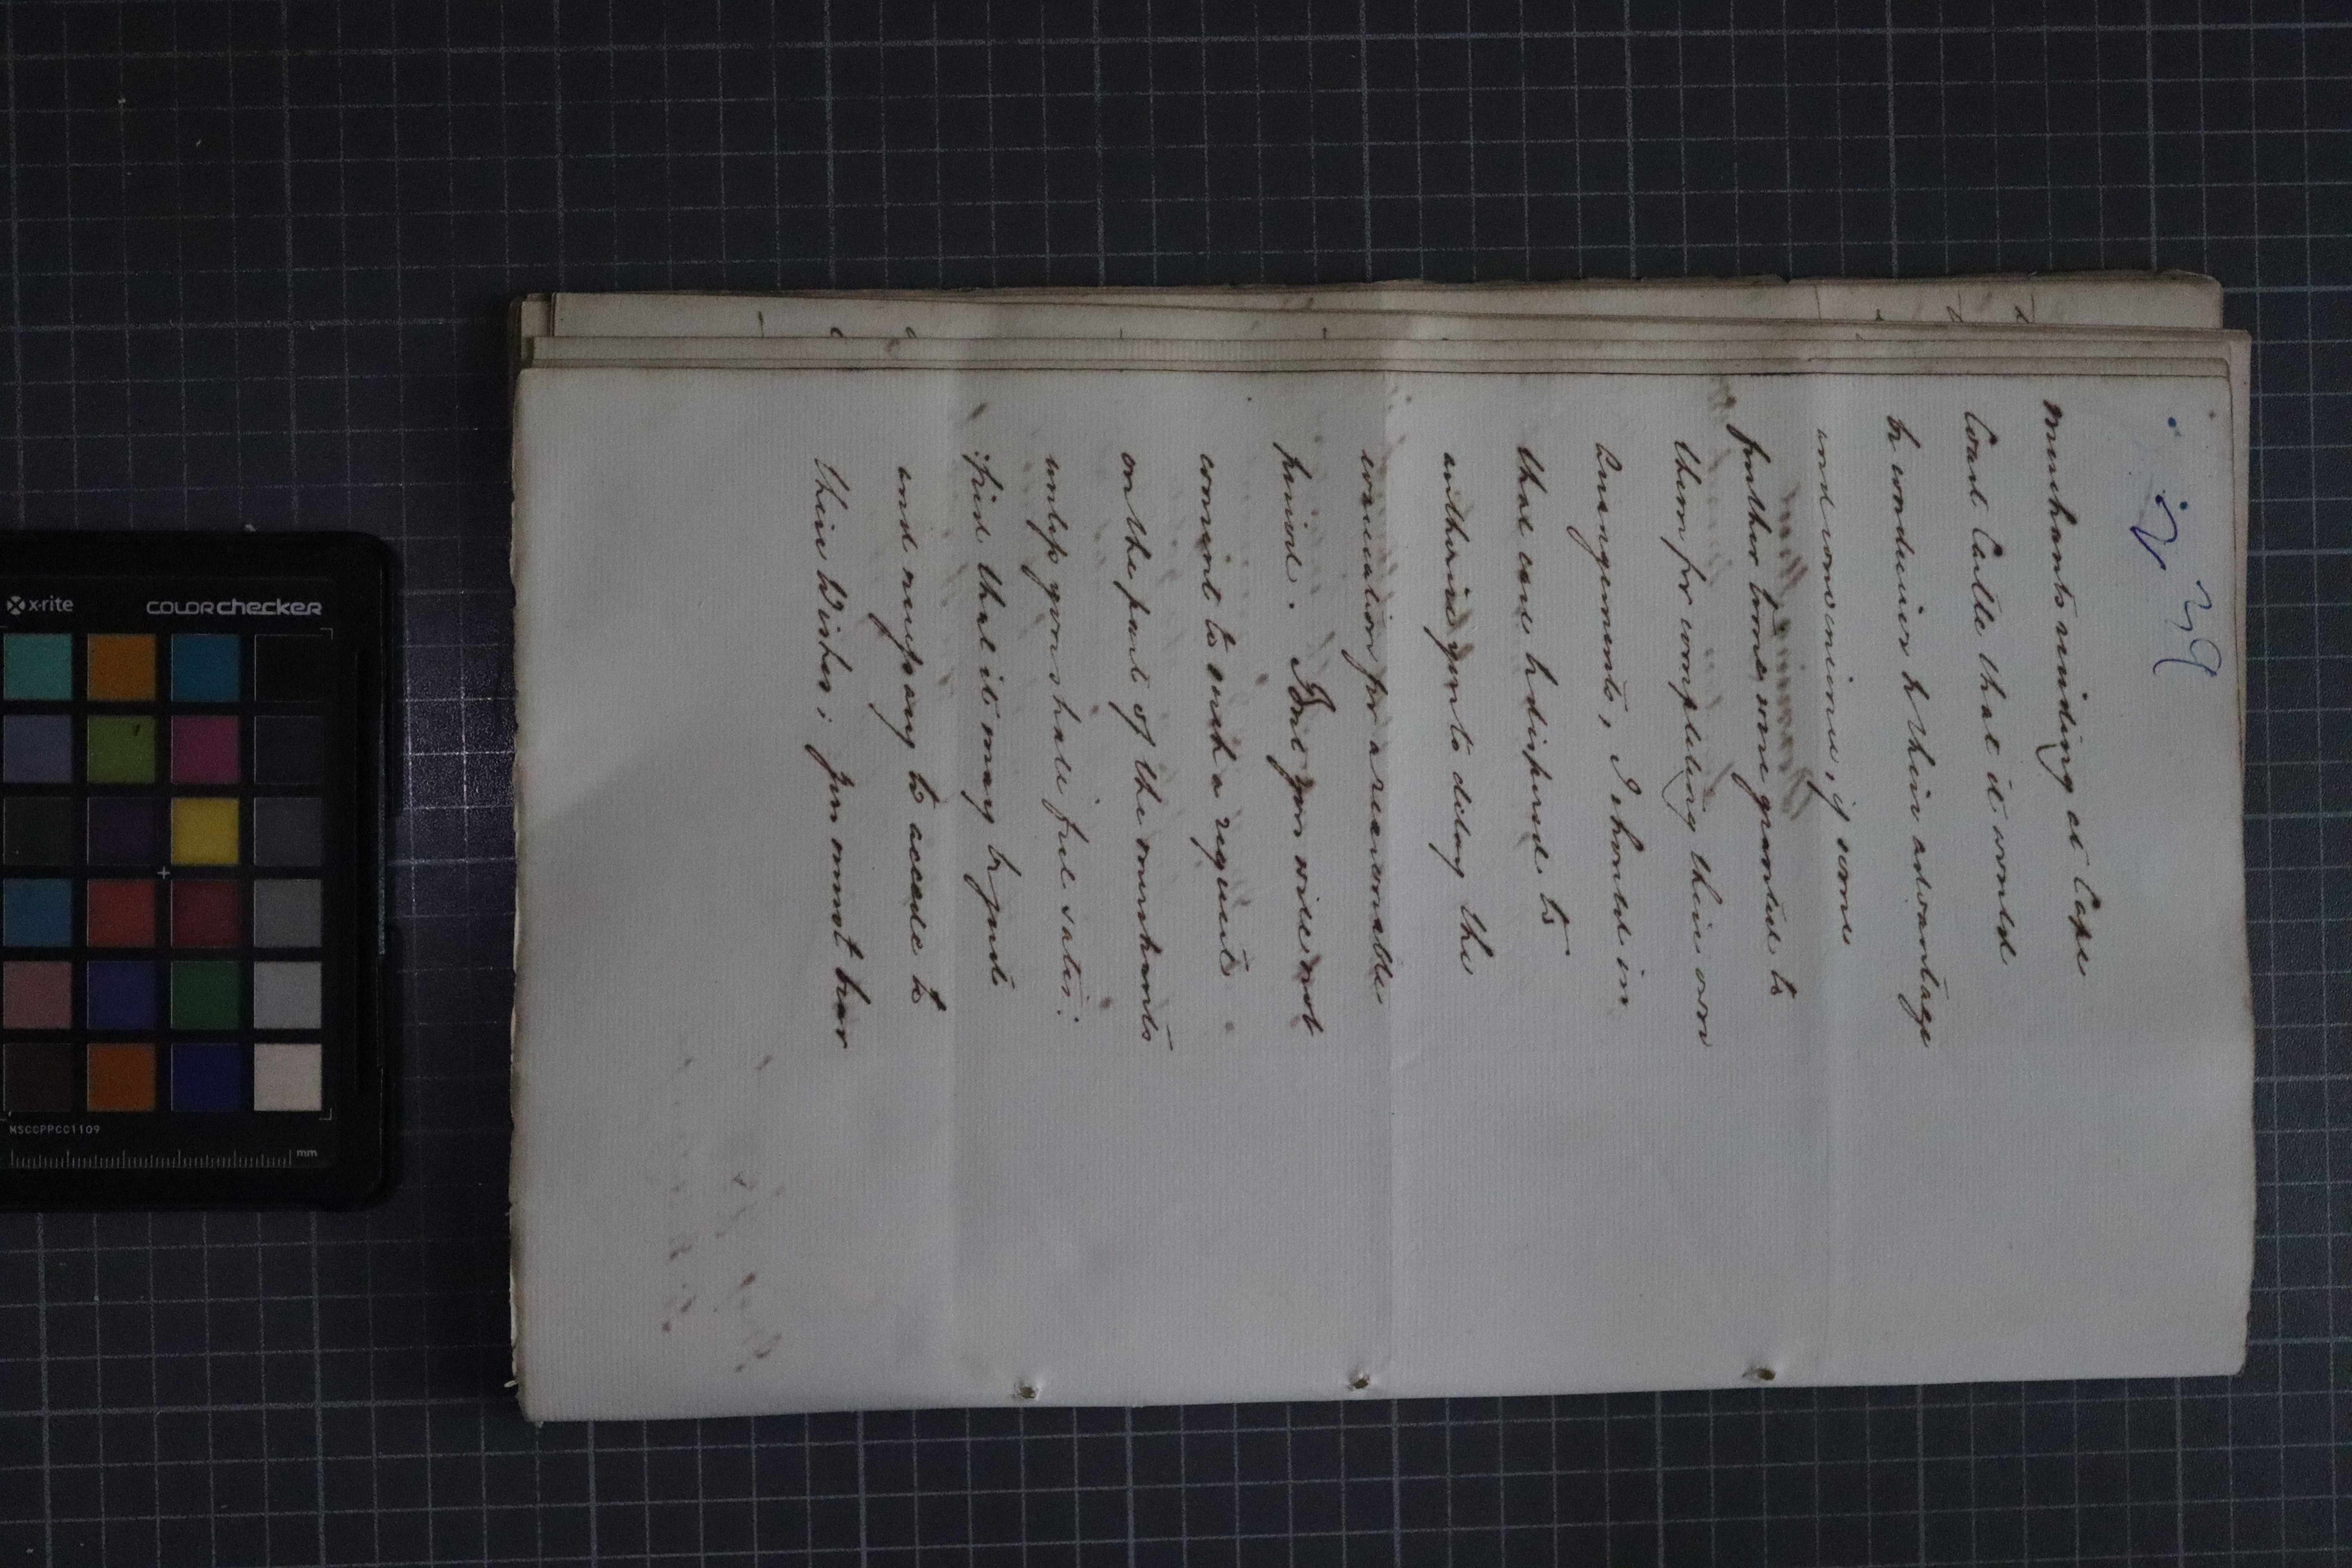 39
merchants residing at Cape
Coast Castle that it would
be conducive to their advantage
and convenience, if some
further time were granted to
them for completing their own
Arrangements, I should in
that case be disposed to
authorise you to delay the
evacuation for a reasonable
period. But you will not
consent to such a request
on the part of the merchants
unless you shall feel satis:
:fied that it may be just
and necessary to accede to
their Wishes; for
x-rite
COLOR checker
MSCCPPCC1109
mm